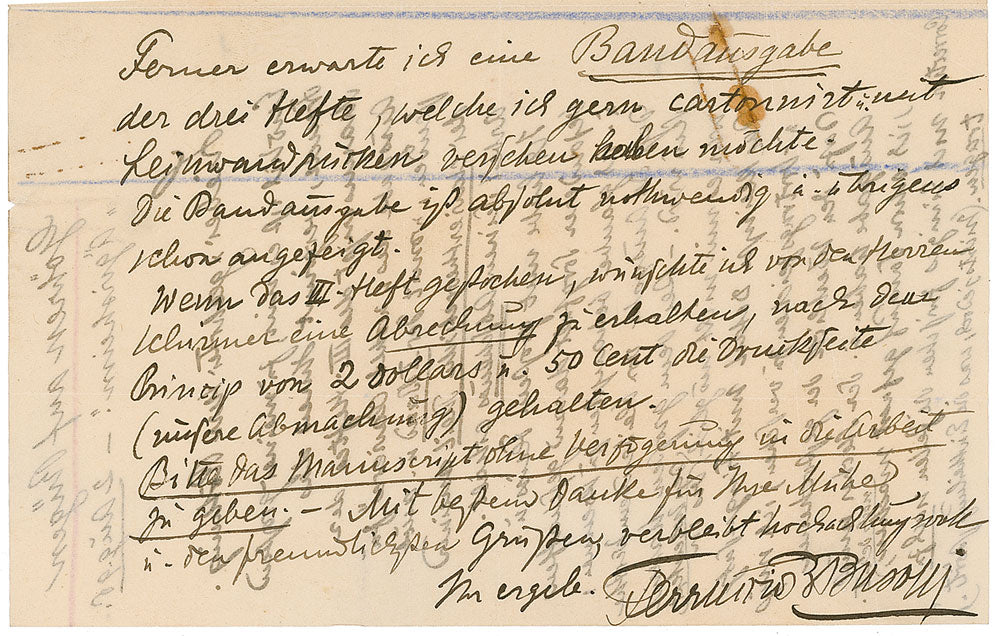 Ferner erwarte ich eine Bandausgabe
der drei Hefte, welche ich gern cartonnirt u. mit
Leinwandrücken versehen haben möchte.
Die Bandausgabe ist absolut nothwendig u. übrigens
schon angezeigt.
Wenn das III. Heft gestochen, wünschte ich von den Herren
Schirmer eine Abrechnung zu erhalten, nach dem
Princip von 2 Dollars u. 50 Cent die Druckseite
(unsere Abmachung) gehalten.
Bitte das Manuscript ohne Verzögerung in die Arbeit
zu geben. – Mit bestem Danke für Ihre Mühe
u. den freundlichsten Grüßen, verbleibt hochachtungsvoll
Ihr ergeb. Ferruccio B Busoni